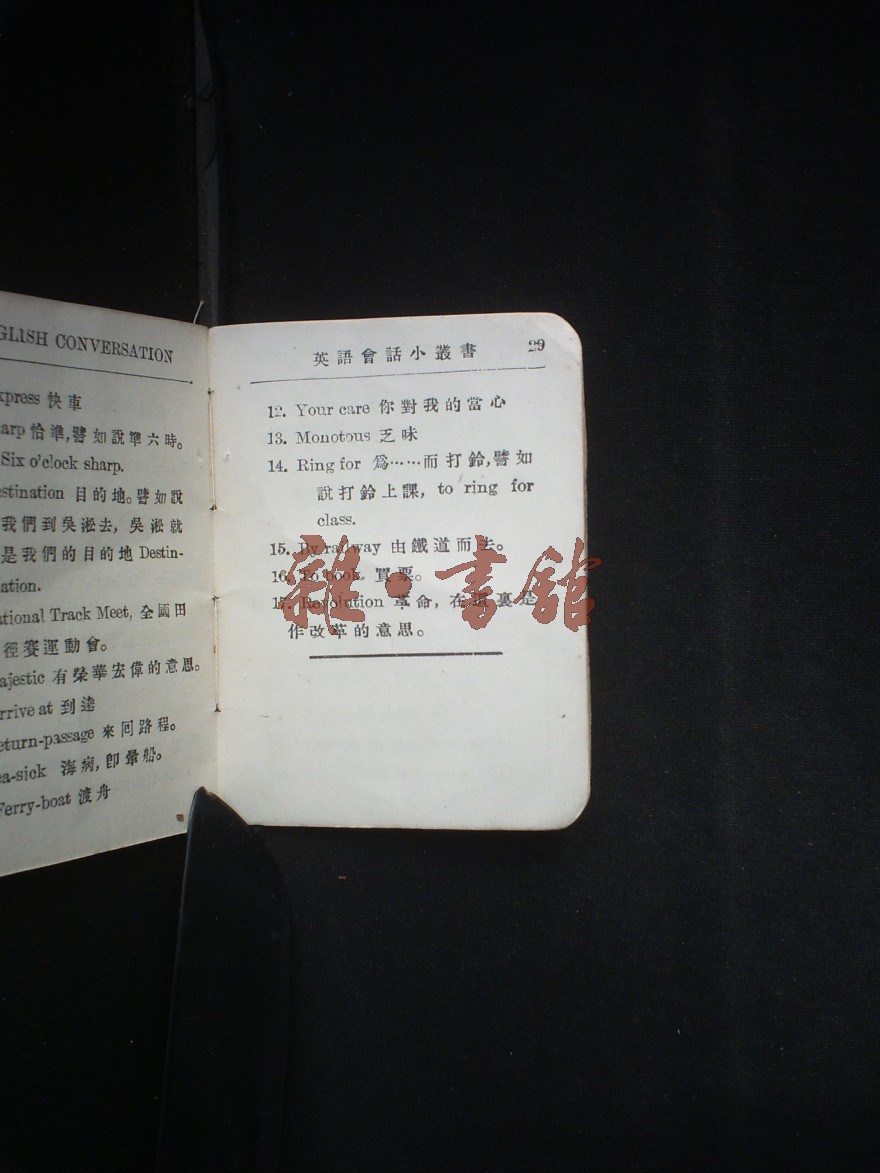 GLISH CONVERSATION
xpress 快車
arp 恰準,譬如說準六時。
Six o'clock sharp.
estination 目的地。譬如說
我們到吳淞去, 吳淞就
是我們的目的地 Destin-
ation.
ational Track Meet, 全國田
徑賽運動會。
ajestic 有榮華宏偉的意思。
rrive at 到達
eturn-passage 來回路程。
ea-sick 海病, 卽暈船。
Ferry-boat 渡舟
英語會話小叢書 29
12. Your care 你對我的當心
13. Monotous 乏味
14. Ring for 爲……而打鈴,譬如
說打鈴上課, to ring for
class.
15. By railway 由鐵道而去。
16. To book 買票。
17. Revolution 革命, 在這裏是
作改革的意思。
雜·書館